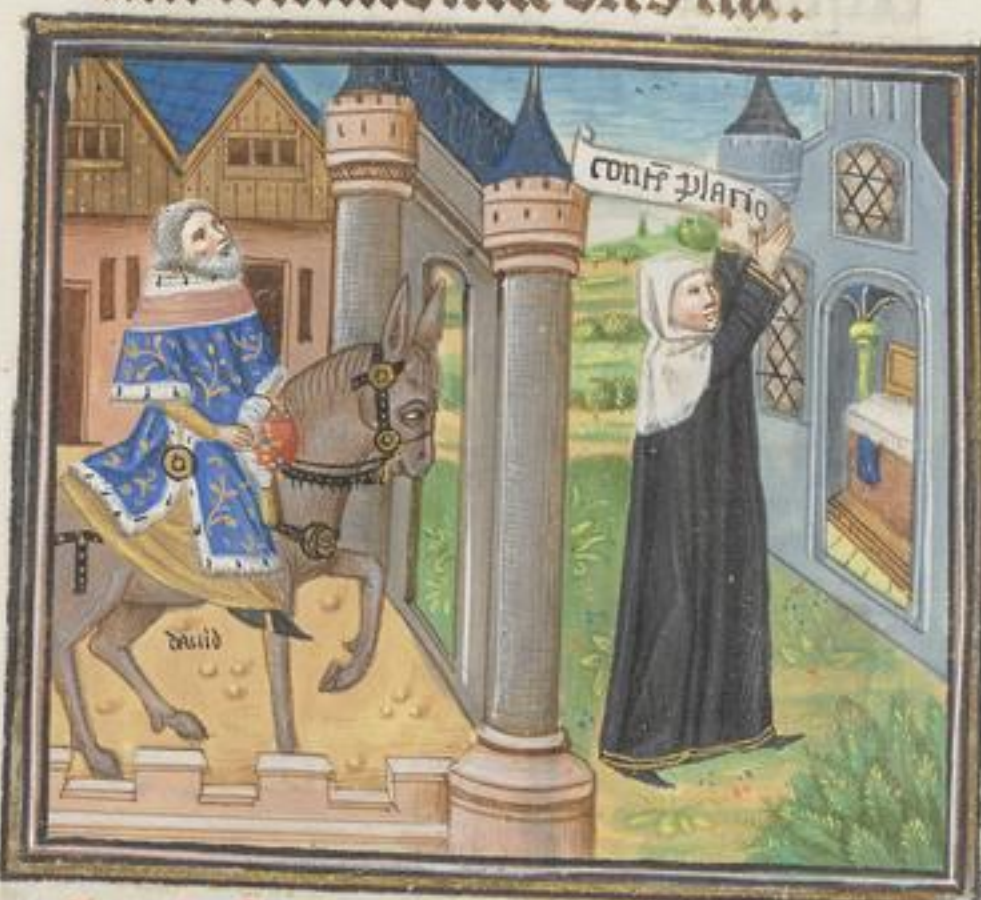 contēplatio
dauid